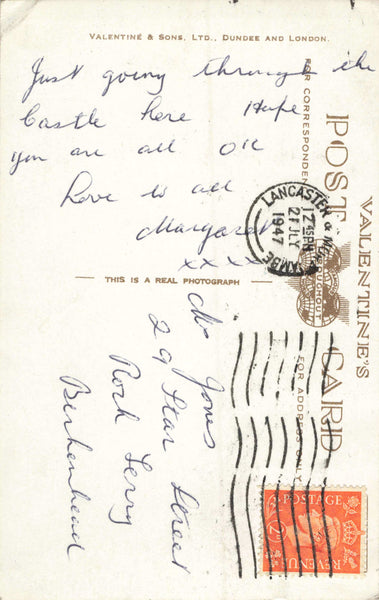 VALENTINE & SONS, LTD., DUNDEE AND LONDON.
Just going through the
Castle here Hope
you are all OK
Love to all
Margaret
x x x x
FOR CORRESPONDENCE
VALENTINE'S
POST CARD
THROUGHOUT
LANCASTER &
12 45 PM
21 JLY
1947
THIS IS A REAL PHOTOGRAPH
FOR ADDRESS ONLY
Jones
29 Star Street
Rock Ferry
Birkenhead
POSTAGE
REVENUE